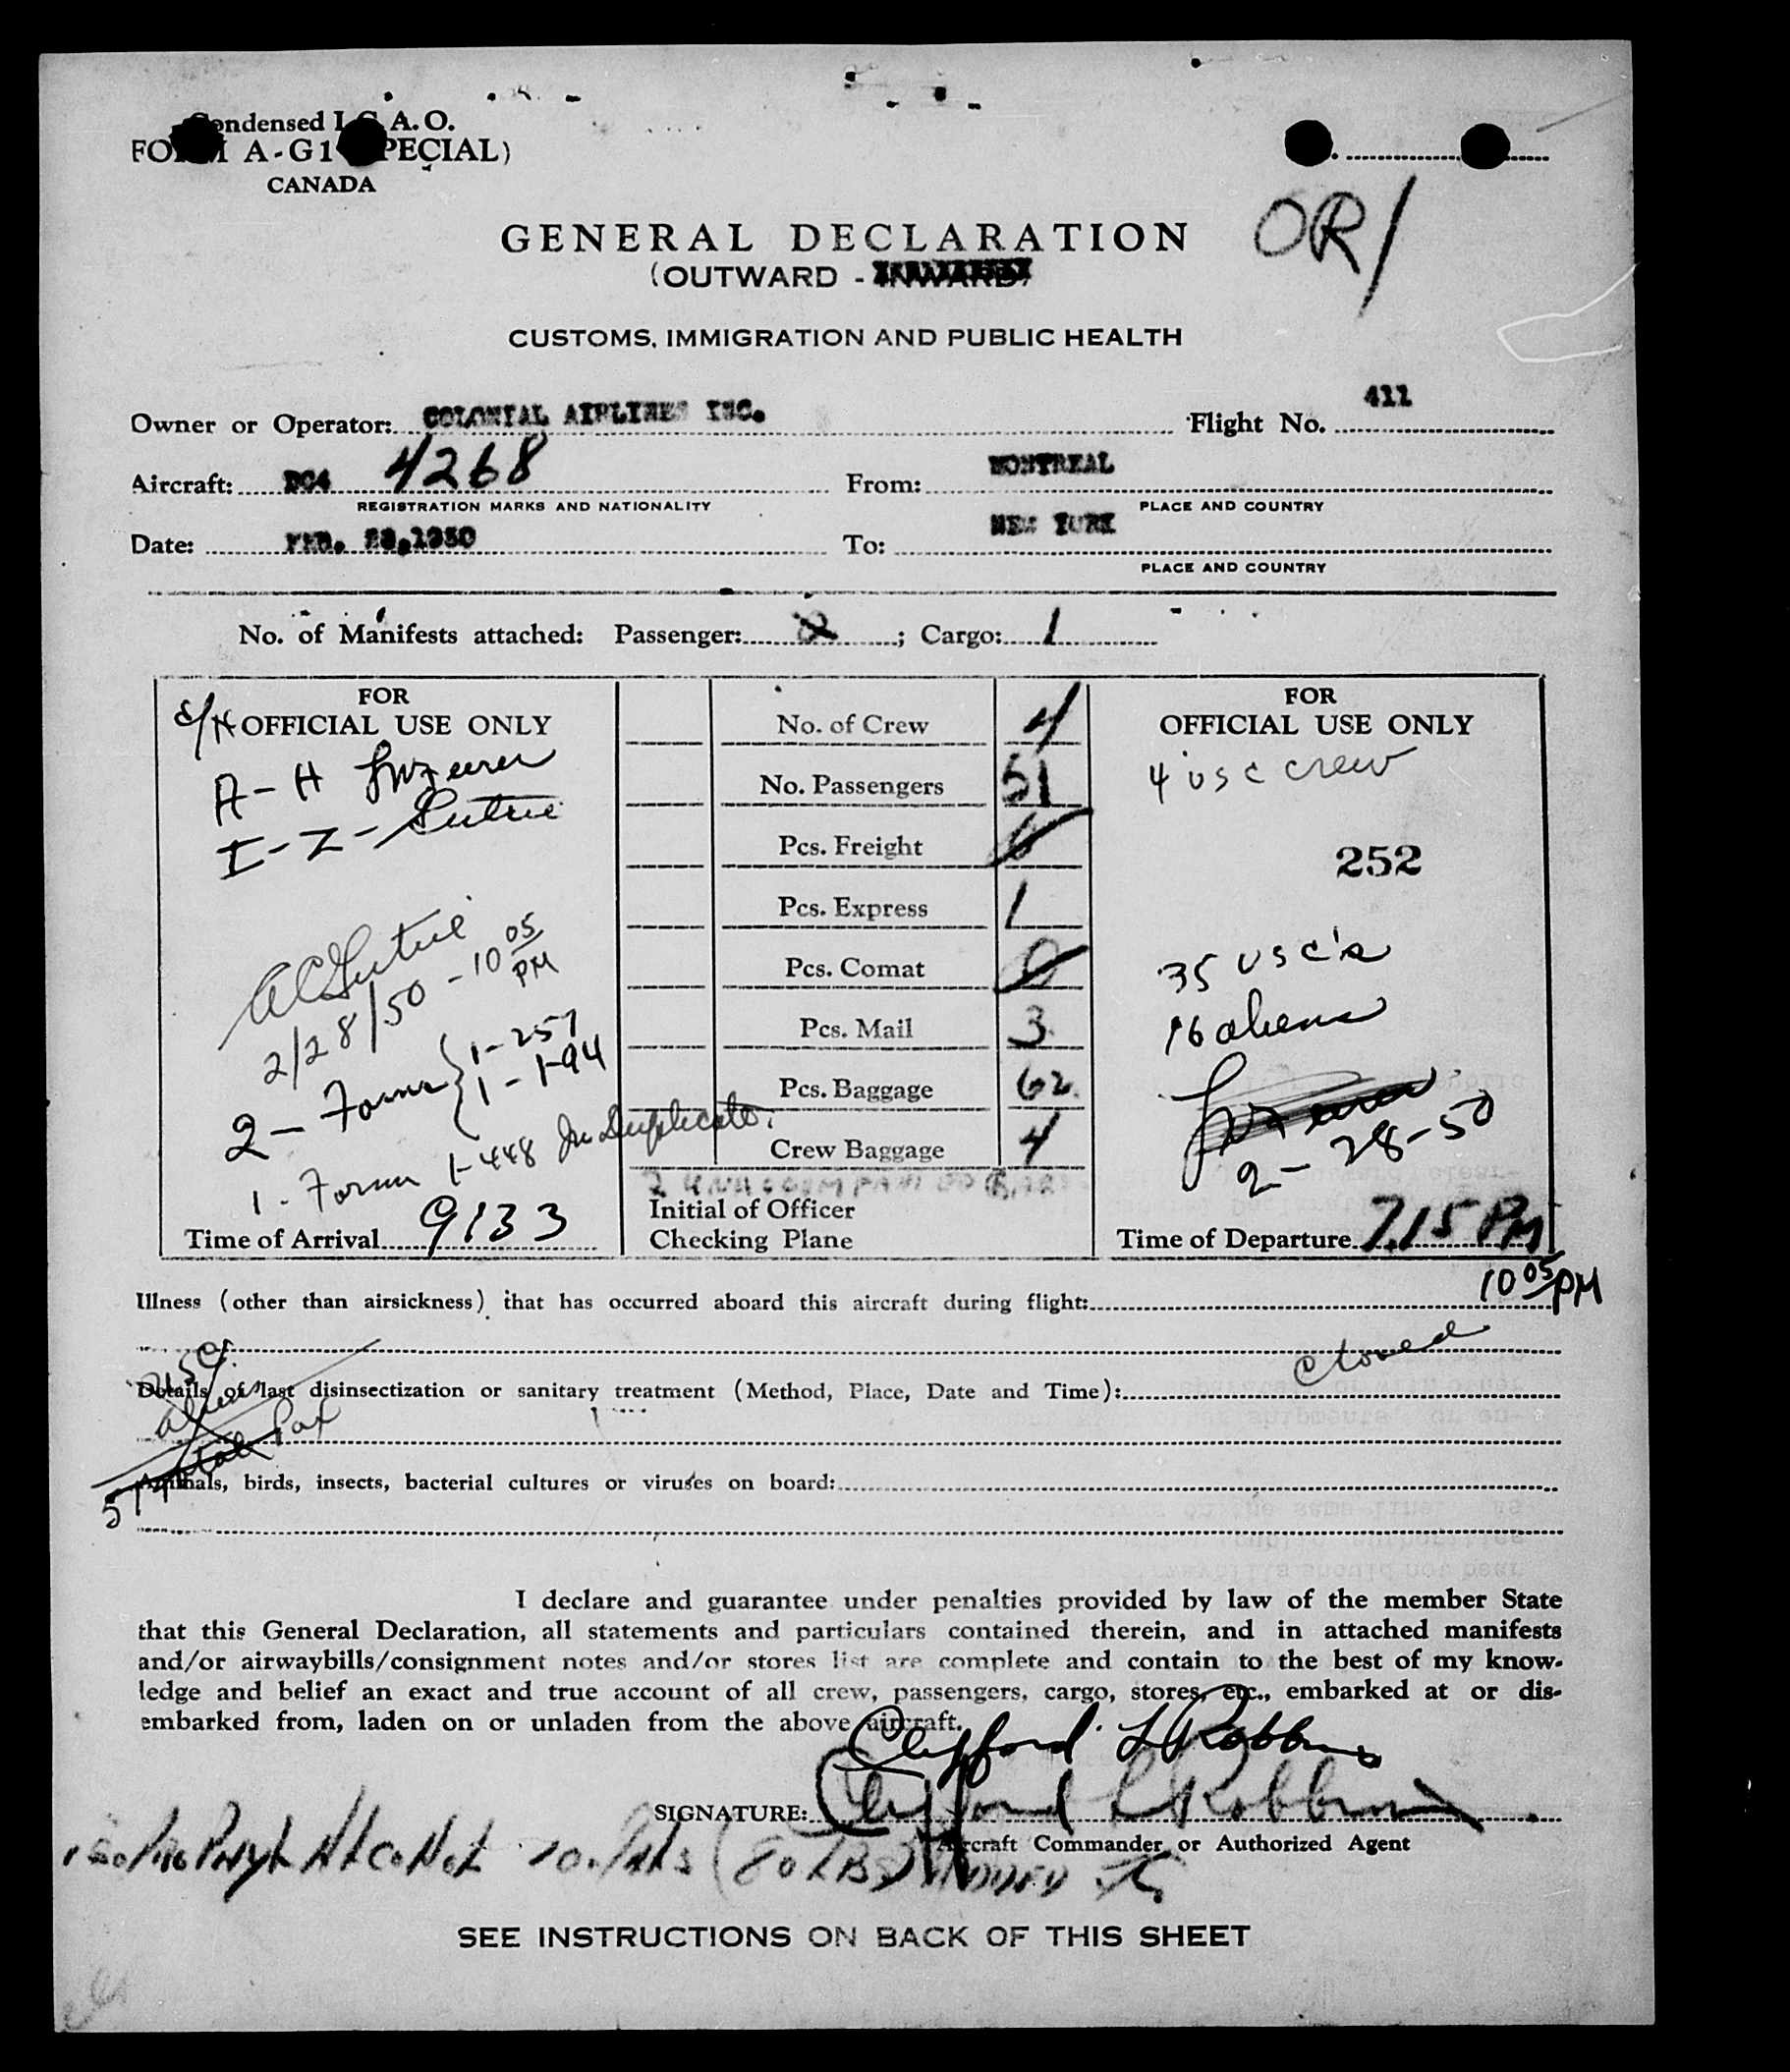 Condensed I.C.A.O.
FORM A-G1 (SPECIAL)
CANADA
OR/
GENERAL DECLARATION
(OUTWARD - INWARD)
CUSTOMS, IMMIGRATION AND PUBLIC HEALTH
Owner or Operator: COLONIAL AIRLINES INC. Flight No. 411
Aircraft: DC4 4268 From: MONTREAL
REGISTRATION MARKS AND NATIONALITY PLACE AND COUNTRY
Date: FEB. 28,1950 To: NEW YORK
PLACE AND COUNTRY
No. of Manifests attached: Passenger: 2; Cargo: 1
FOR
OFFICIAL USE ONLY
A-H
I-Z-
2/28/50 - 10 05 PM
2- Forms { 1-257
1-I-94
1- Form I-448 In Duplicate.
Time of Arrival 9:33
No. of Crew 4
No. Passengers 51
Pcs. Freight 0
Pcs. Express 1
Pcs. Comat 0
Pcs. Mail 3
Pcs. Baggage 62
Crew Baggage 4
2 UNACCOMPANIED BAGS
Initial of Officer
Checking Plane
FOR
OFFICIAL USE ONLY
4 USC crew
252
35 USC's
16 aliens
2-28-50
Time of Departure 7.15 PM
10 05 PM
Illness (other than airsickness) that has occurred aboard this aircraft during flight:
Details of last disinsectization or sanitary treatment (Method, Place, Date and Time):
USC
aliens
51 total Pax
Animals, birds, insects, bacterial cultures or viruses on board:
I declare and guarantee under penalties provided by law of the member State
that this General Declaration, all statements and particulars contained therein, and in attached manifests
and/or airwaybills/consignment notes and/or stores list are complete and contain to the best of my know-
ledge and belief an exact and true account of all crew, passengers, cargo, stores, etc., embarked at or dis-
embarked from, laden on or unladen from the above aircraft.
Clifford L Robbins
SIGNATURE: Clifford L Robbins
Aircraft Commander or Authorized Agent
(80 LBS)
SEE INSTRUCTIONS ON BACK OF THIS SHEET